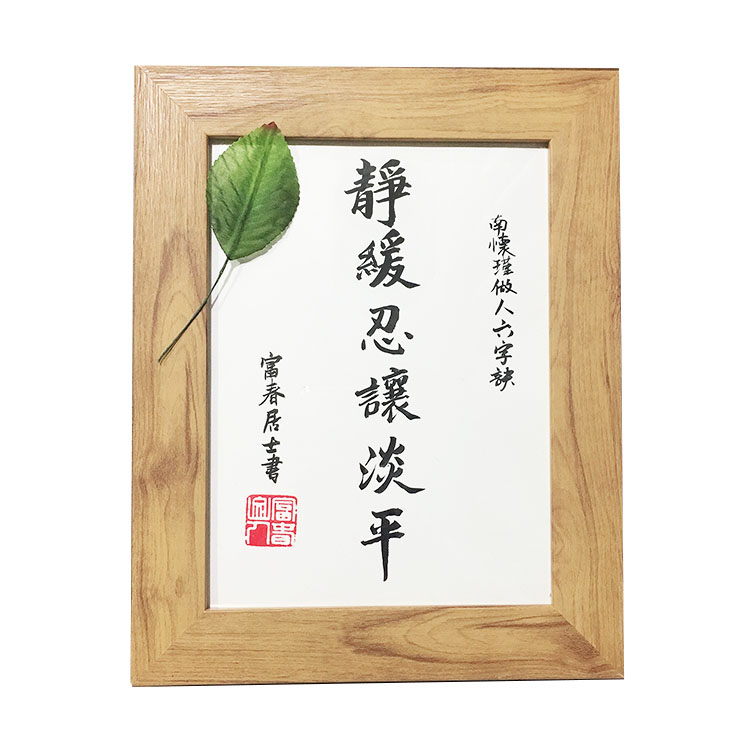 南懷瑾做人六字訣
靜緩忍讓淡平
富春居士書